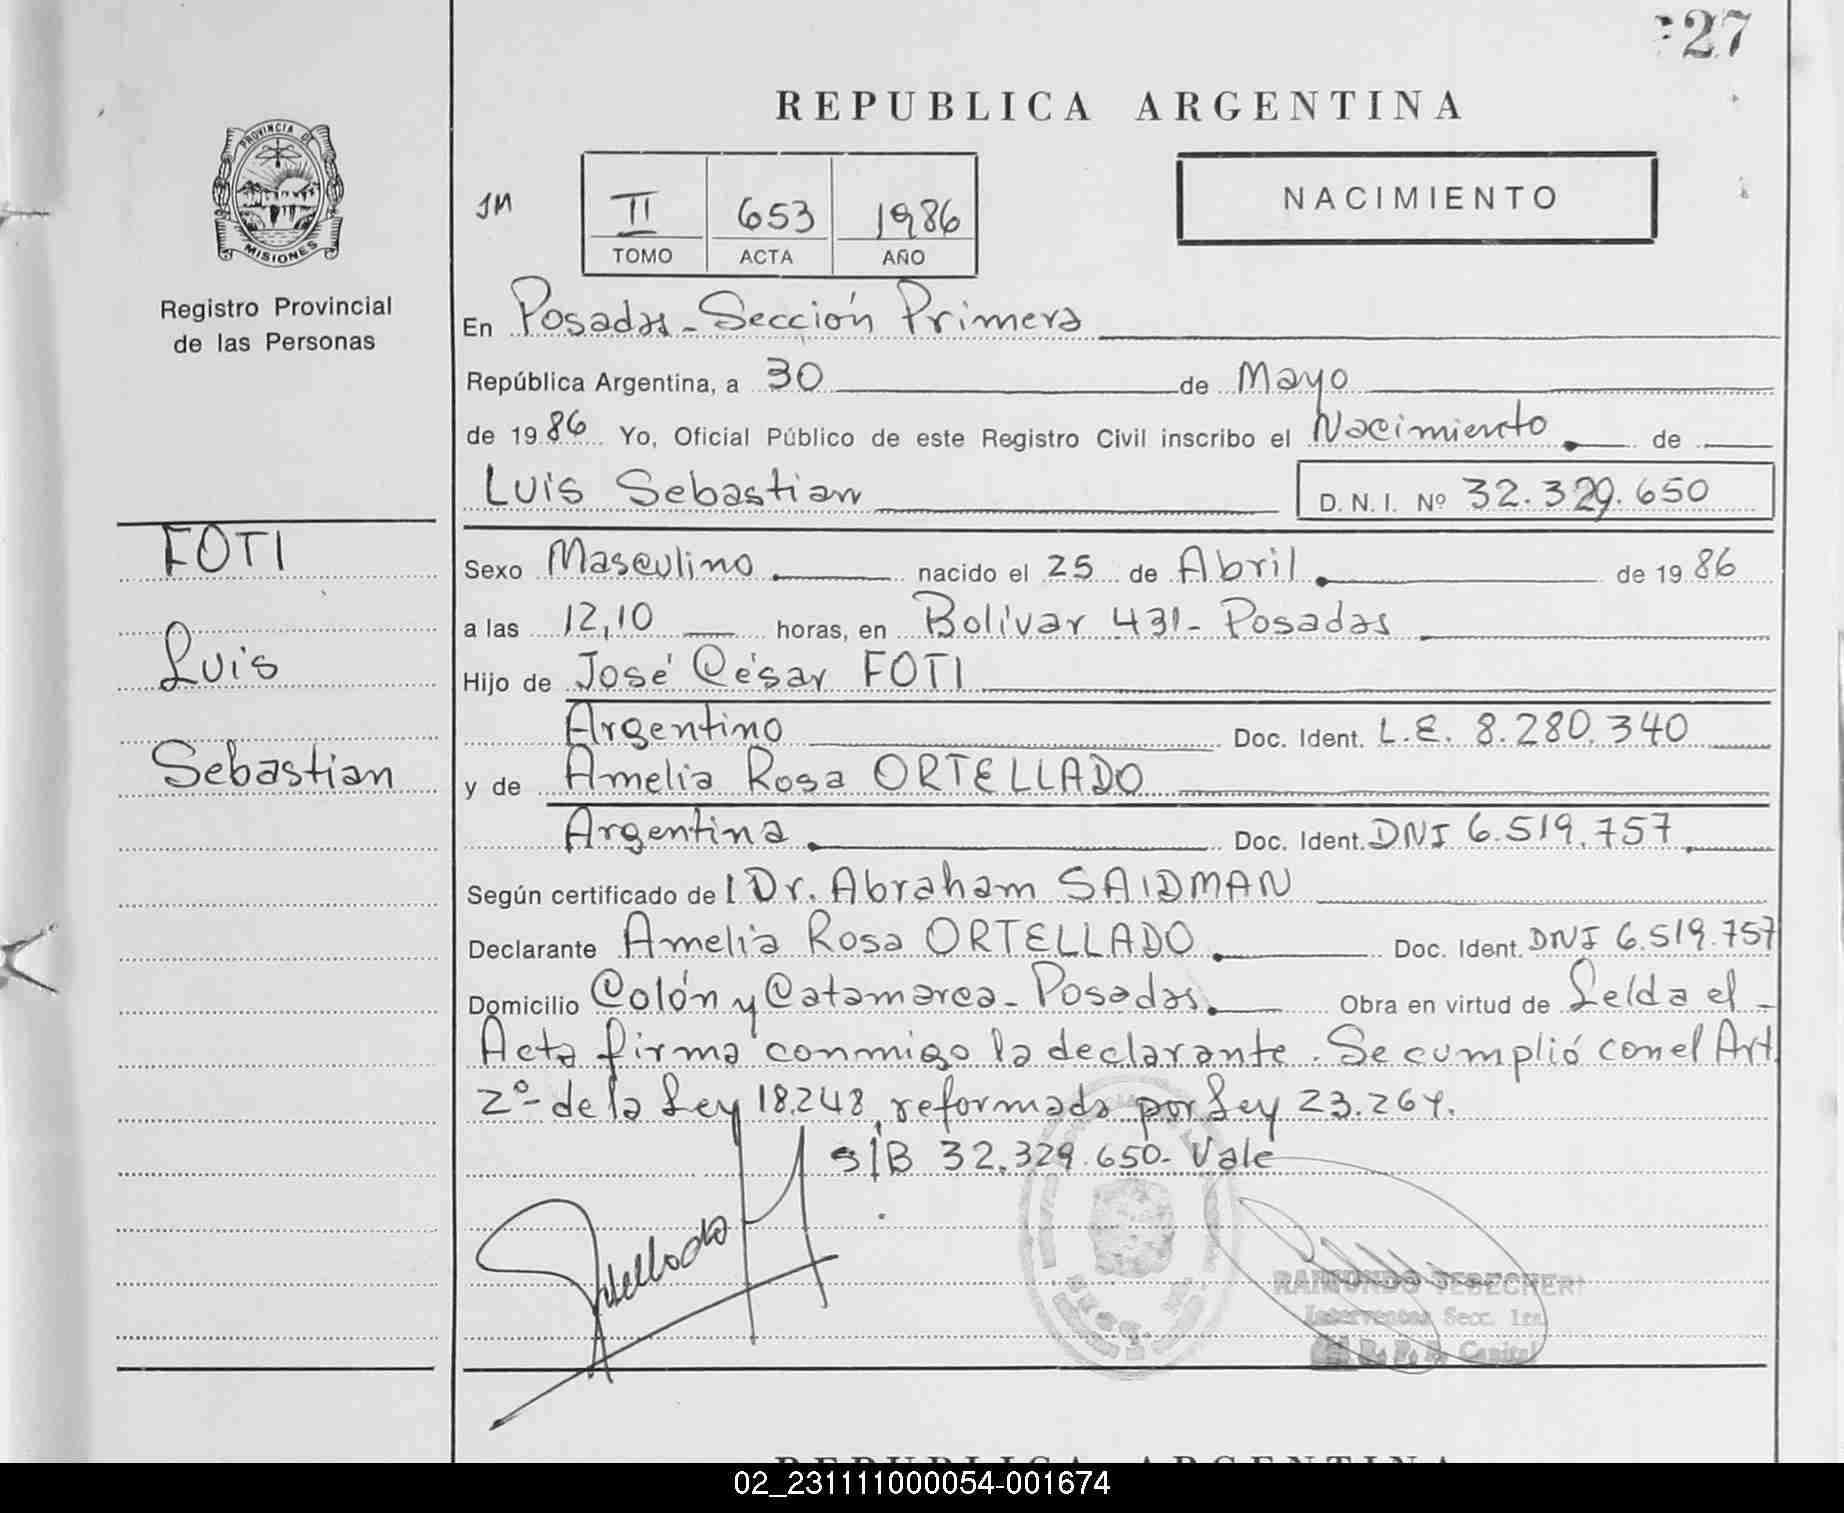 27
REPUBLICA ARGENTINA
PROVINCIA DE
MISIONES
Registro Provincial
de las Personas
JM
II 653 1986
TOMO ACTA AÑO
NACIMIENTO
En Posadas - Sección Primera
República Argentina, a 30 de Mayo
de 1986 Yo, Oficial Público de este Registro Civil inscribo el Nacimiento de
Luis Sebastian D. N. I. Nº 32.329.650
FOTI
Luis
Sebastian
Sexo Masculino nacido el 25 de Abril de 1986
a las 12,10 horas, en Bolivar 431 - Posadas
Hijo de José César FOTI
Argentino Doc. Ident. L.E. 8.280.340
y de Amelia Rosa ORTELLADO
Argentina Doc. Ident. DNI 6.519.757
Según certificado de l Dr. Abraham SAIDMAN
Declarante Amelia Rosa ORTELLADO Doc. Ident. DNI 6.519.757
Domicilio Colón y Catamarca - Posadas. Obra en virtud de Leida el -
Acta firma conmigo la declarante. Se cumplió con el Art.
2º de la Ley 18.248, reformada por Ley 23.264.
S/B 32.329.650 - Vale
Ortellado
RAIMUNDO
Interventor Secc. 1ra
R. P. P. Capital
REPUBLICA ARGENTINA
02_231111000054-001674